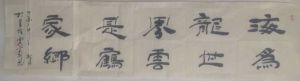 海為
龍世
界雲
是鶴
家鄉